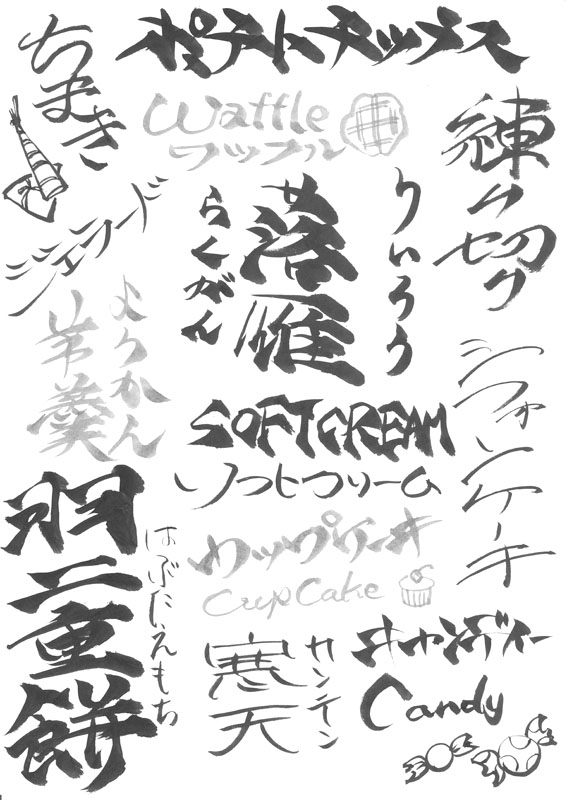 ポテトチップス
ちまき
Waffle
ワッフル
練り切り
ジェラード
らくがん
落雁
ういろう
ようかん
羊羹
シフォンケーキ
SOFTCREAM
ソフトクリーム
羽二重餅
はぶたえもち
カップケーキ
CupCake
寒天
カンテン
キャンディー
Candy